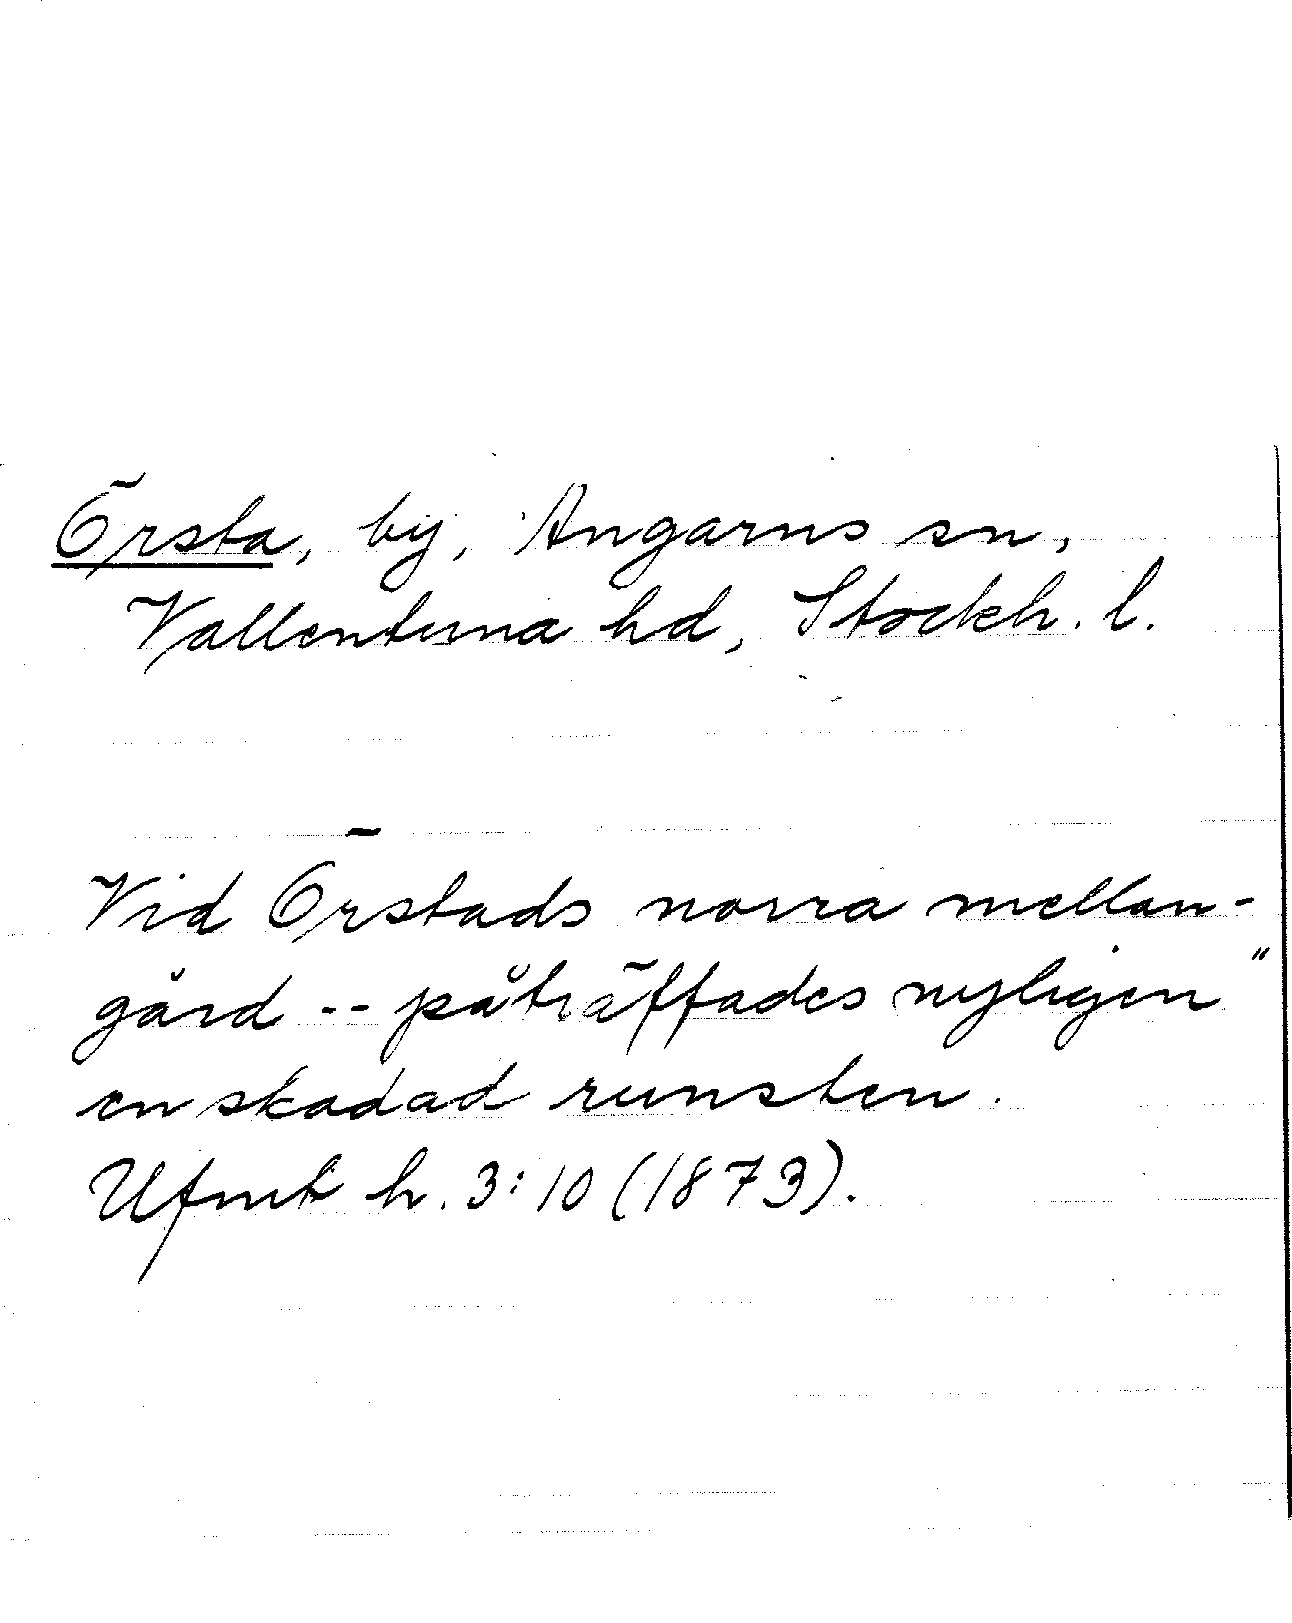 Örsta, by, Angarns sn,
Vallentuna hd, Stockh. l.
Vid Örstads norra mellan-
gård -- påträffades nyligen "
en skadad runsten.
Ufmt h. 3:10 (1873).